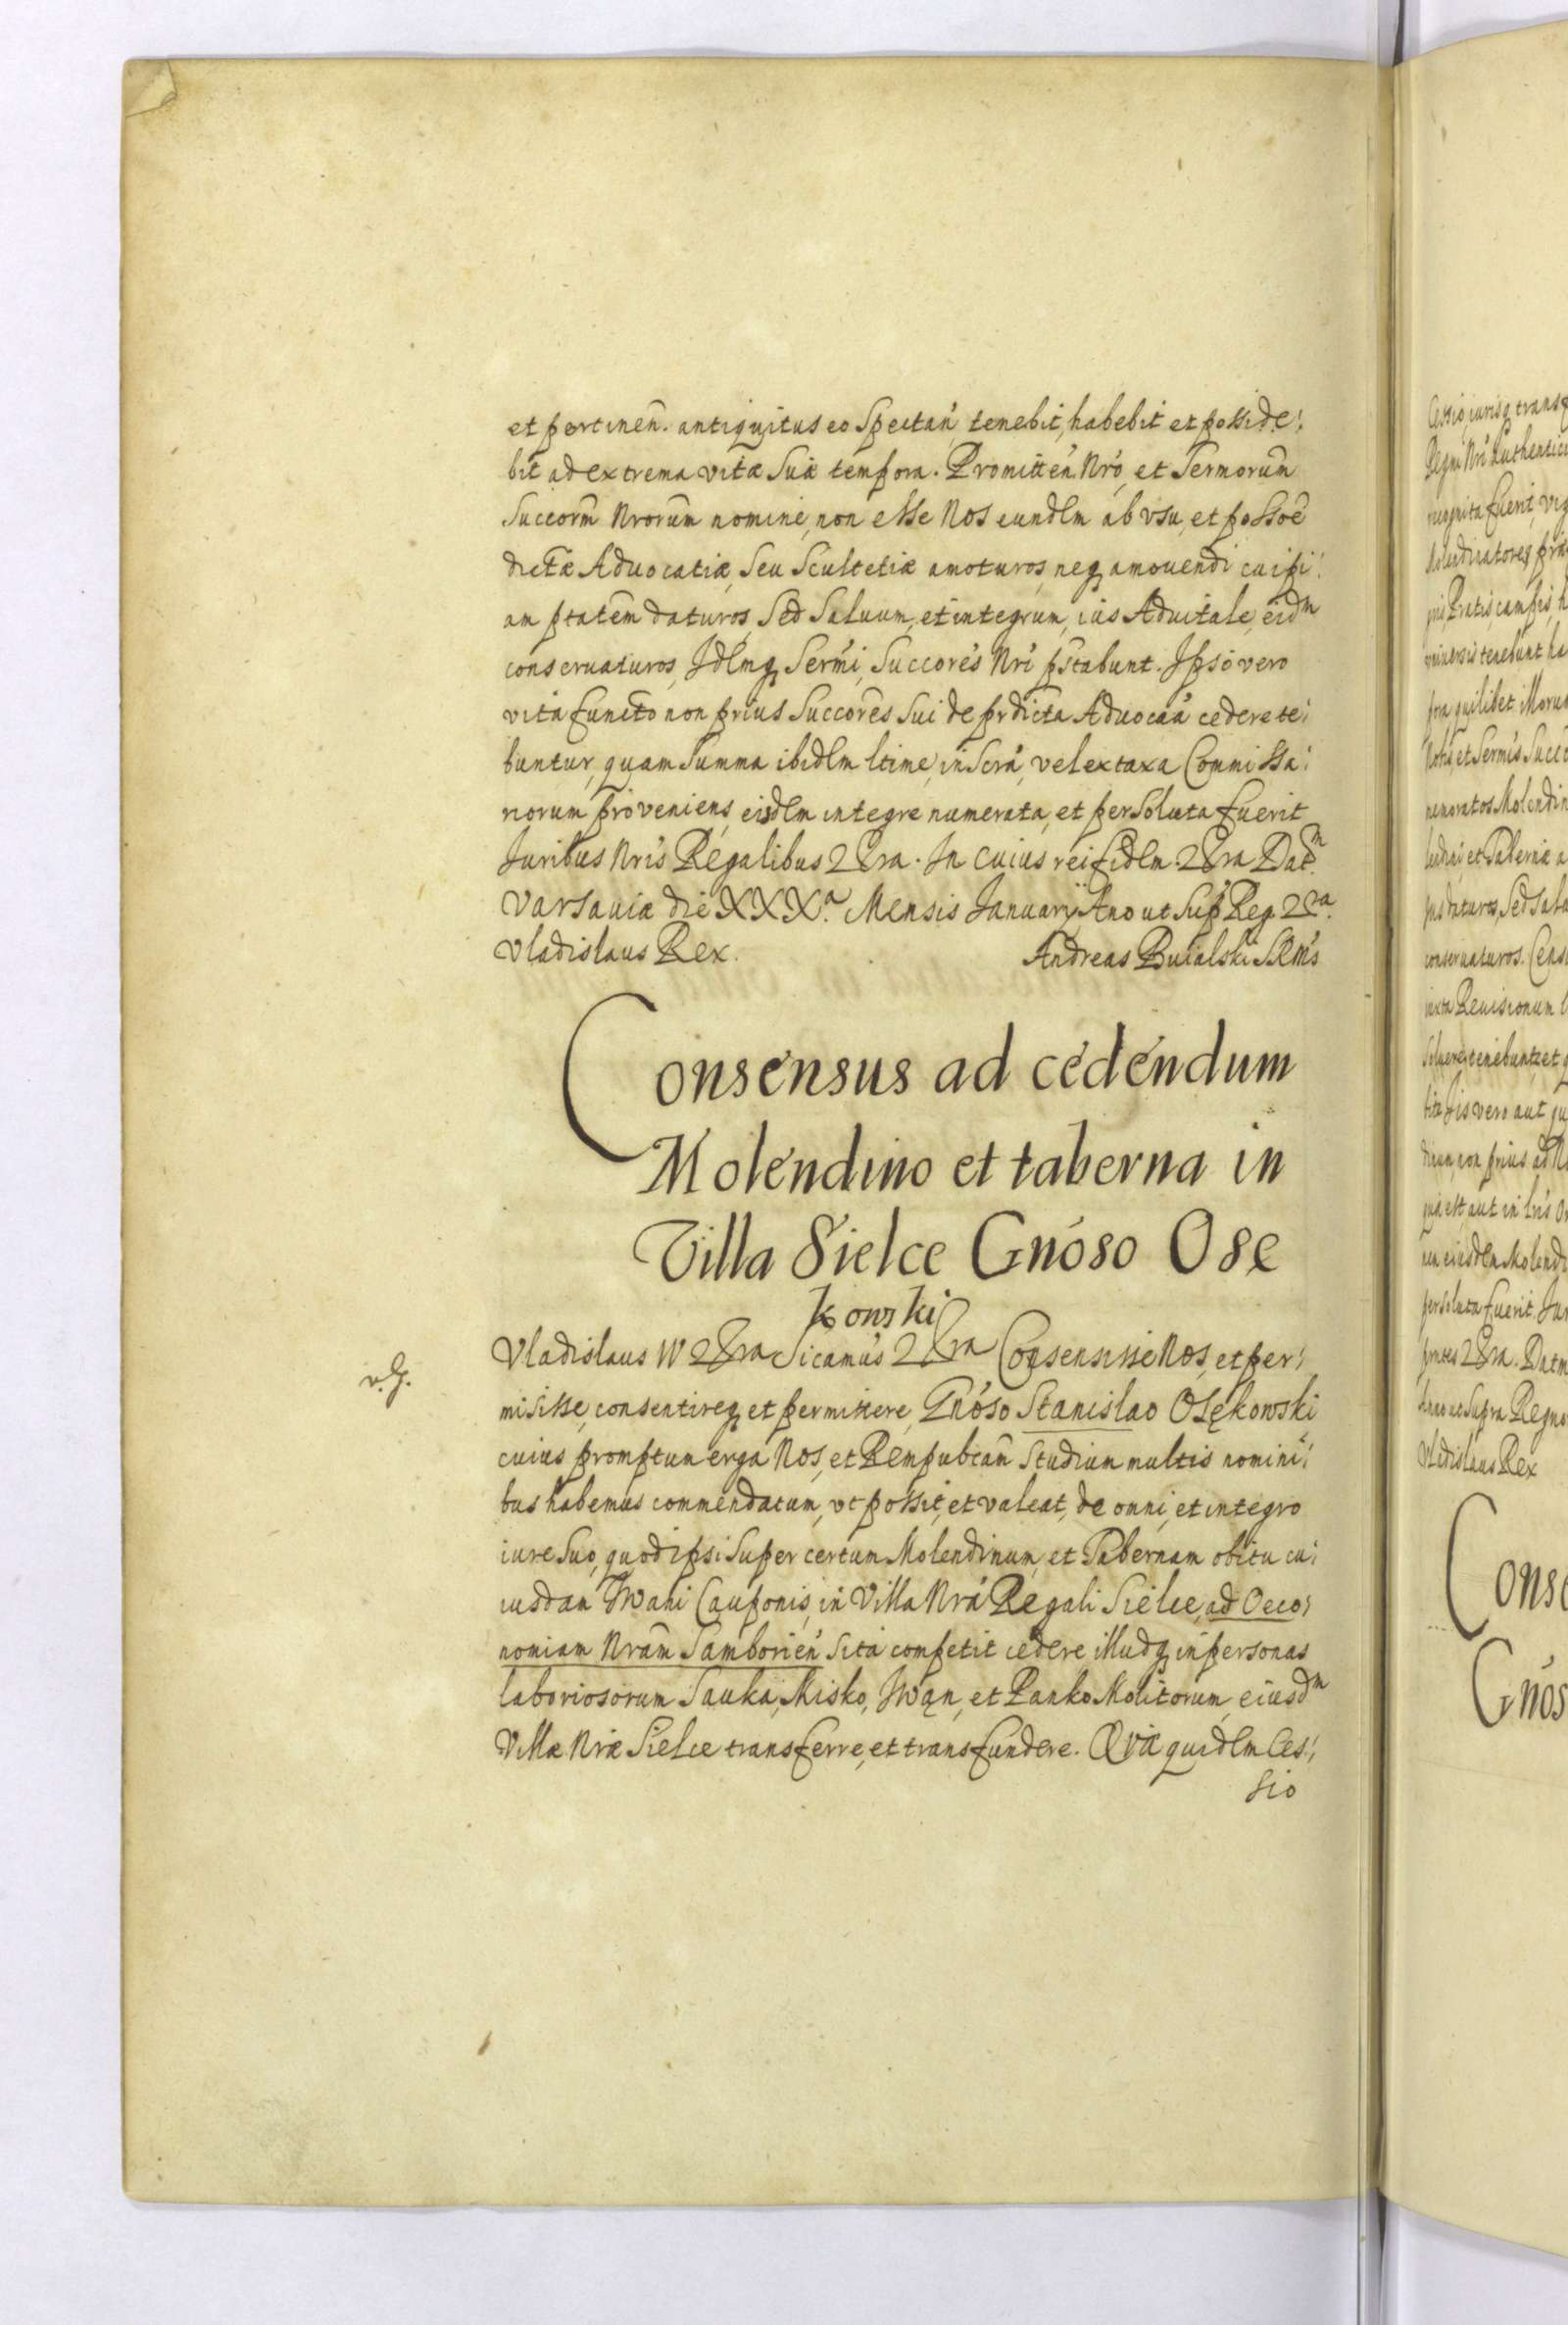 et pertinen. antiquitus eo Spectan, tenebit, habebit et posside:
bit ad extrema vitæ Suæ tempora. Promitten. Nro, et Sermorum
Succorm Nrorum nomine, non esse Nos eundlm ab vsu, et possoe
dictæ Advocatiæ, Seu Scultetiæ amoturos, neq amouendi cuipi:
am ptatem daturos, Sed Saluum, et integrum, ius Aduitale, eidm
conseruaturos, Idlmq Sermi, Succores Nri pstabunt. Ipso vero
vita functo non prius Succores Sui de prdicta Aduocaa cedere te:
buntur, quam Summa ibidlm ltime, inscra, vel ex taxa Commissa:
riorum proveniens, eisdlm integre numerata, et persoluta fuerit
Juribus Nris Regalibus 2&ra. In cuius rei fidlm. 2&ra Datm
Varsaviæ die XXXa. Mensis January, Ano ut Sup Reg. 2&a.
Vladislaus Rex. Andreas Buialski SRMs
Consensus ad cedendum
Molendino et taberna in
Villa Sielce Gnoso Ose
kowski
Vladislaus IV 2&ra Sicamus 2&ra Consensisse Nos, et per:
misisse, consentireq et permittere, Gnoso Stanislao Osękowski
cuius promptum erga Nos, et Rempubcam Studium multis nomini:
bus habemus commendatum, vt possit, et valeat, de omni, et integro
iure Suo, quod ipsi Super certum Molendinum, et Tabernam obitu cu:
iusdam Iwani Cauponis, in Villa Nra Regali Sielce, ad Oeco:
nomiam Nram Samborien Sita competit cedere illudq in personas
laboriosorum Sauka, Misko, Iwąn, et Panko Molitorum, eiusdm
Villæ Nræ Sielce transferre, et transfundere. Quæ quidlm Ces:
sio
Cessio, iurisq
Regni Nri Authentice
fuerit
Molendinatores
Pratis, campis, h
tenebunt
quilibet
et Sermis
Molendin
et Tabernæ a
daturos, Sed
conseruaturos. Cens
iuxta Reuisionum
tenebuntr, et
vero aut
non prius ad
aut in
eiusdlm Molendi
persoluta fuerit. Jur
2&ra. Datm
Anno ut Supra Regno
Vladislaus Rex
Conse
Gnos